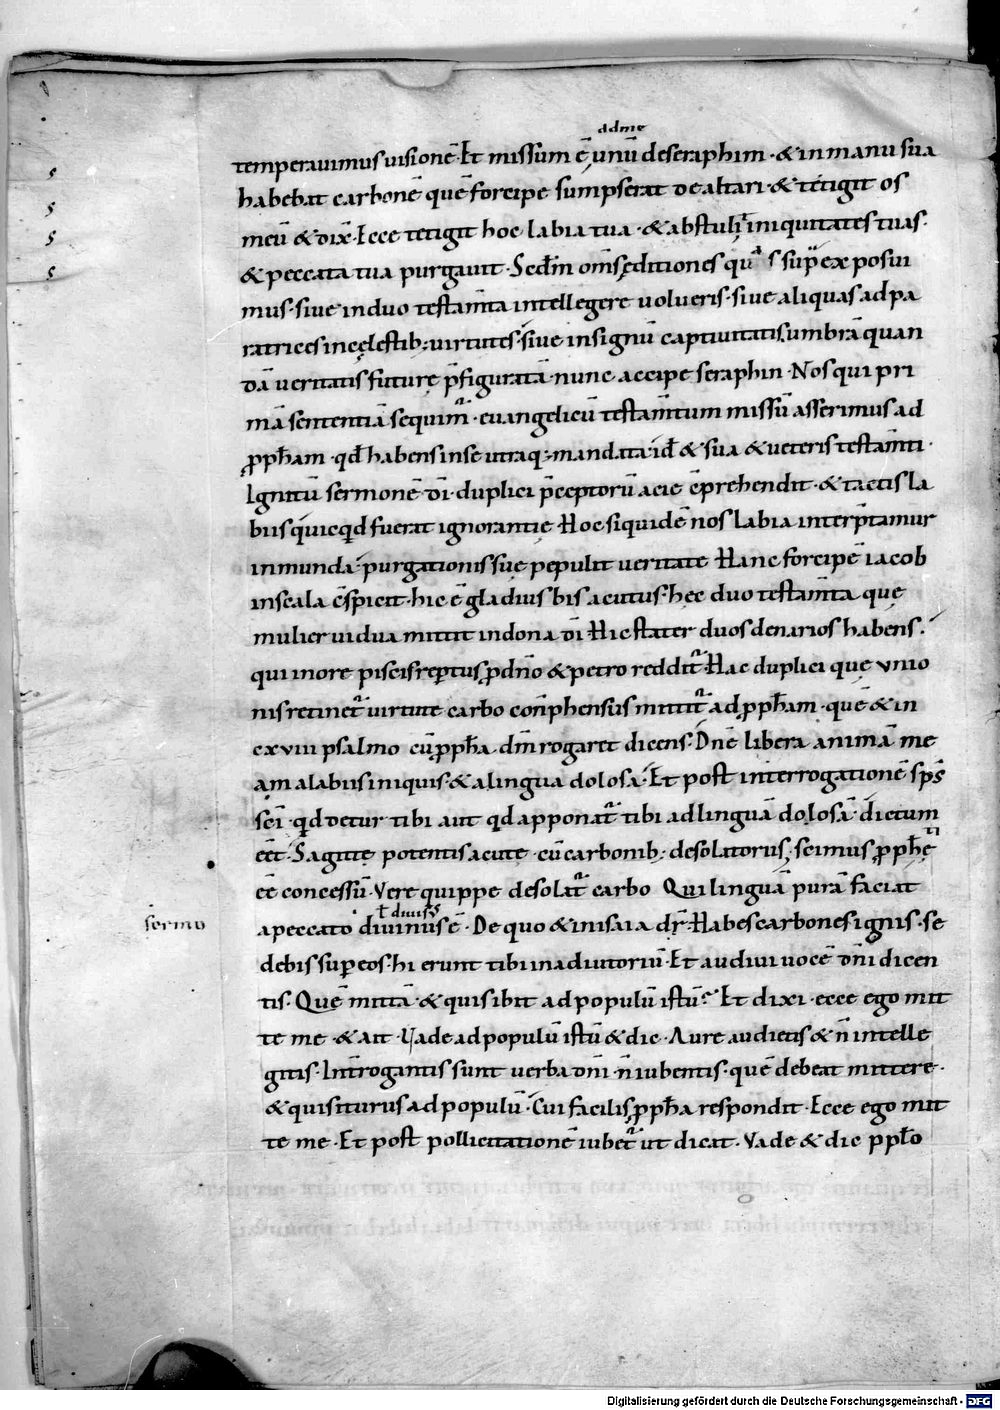 ad me
temperauimus uisionē· Et missum ē unū deseraphim· & inmanu sua
habebat carbonē quē forcipe sumpserat de altari· & tetigit os
meū & dix̄· Ecce tetigit hoc labia tua· & abstulit iniquitates tuas·
& peccata tua purgauit· Sed iuxta om̄s ęditiones quas sup̄ exposui
mus· siue induo testam̄ta intellegere uolueris· siue aliquas ad pa
ratrices incęlestib; uirtutes· siue insignū captiuitatis umbrā quan
dā ueritatis futurę p̄figuratā· nunc accipe seraphin· Nos qui pri
mā sententiā sequimur· euangelicū testam̄tum missū asserimus ad
p̱pħam· qđ habens inse utraq; mandata· id ē & sua & ueteris testam̄ti·
Ignitū sermonē dī· duplici p̄ceptorū acie cōprehendit· & tactis la
biis quicqđ fuerat ignorantię· Hoc siquidē nos labia interp̄tamur
inmunda· purgationis suę pepulit ueritate· Hanc forcipē iacob
inscala cōspicit· hic ē gladius bis acutus· hec duo testam̄ta que
mulier uidua mittit indona dī· Hic stater duos denarios habens·
qui inore piscis rep̱tus· p̱ dn̄o & petro redditur· Hac duplici que unio
nis retinetur uirtute carbo conp̄hensus mittitur ad p̱pħam· quē & in
cxviiii psalmo cū p̱pħa dm̄ rogaret dicens· Dn̄e libera animā me
am alabiis iniquis· & alingua dolosa· Et post interrogationē sps̄
sc̄i· qđ detur tibi aut qđ apponatur tibi ad linguā dolosā· dictum
eēt· Sagittę potentis acutę· cū carbonib; desolatoriis; scimus p̱pħę
eē concessū· Vere quippe desolatur carbo Qui linguā purā faciat
ł diuisus
sermo
apeccato diuinus ē· De quo & inisaia dr̄· Habes carbones ignis· se
debis sup̱ eos· hi erunt tibi inadiutoriū· Et audiui uocē dn̄i dicen
tis· Quē mittā· & quis ibit ad populū istū? Et dixi· ecce ego mit
te me· & ait· Vade ad populū istū & dic· Aure audietis & n̄ intelle
gitis· Int̄rogantis sunt uerba dn̄i· n̄ iubentis· quē debeat mittere·
& quis iturus ad populū· Cui facilis p̱pħa respondit· Ecce ego mit
te me· Et post pollicitationē iubetur ut dicat· Vade & dic pplo
Digitalisierung gefördert durch die Deutsche Forschungsgemeinschaft - DFG